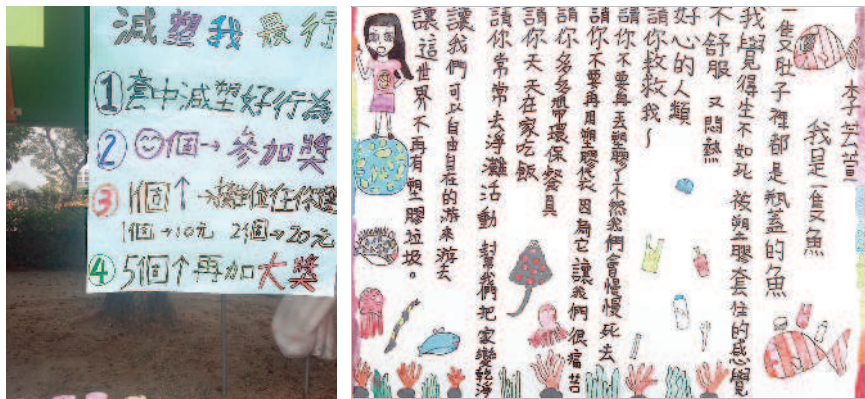 減塑我最行
1 套中減塑好行為
2 個→參加獎
3 1個↑→摸彩值任你選
1個→10元 2個→20元
4 5個↑再加大獎
李芸萱
我是一隻魚
一隻肚子裡都是瓶蓋的魚
我覺得生不如死 被塑膠套住的感覺
不舒服 又悶熱
好心的人類
請你救救我～
請你不要再丟塑膠了不然我們會慢慢死去
請你不要再用塑膠袋 因為它讓我們很痛苦
請你多多帶環保餐具
請你天天在家吃飯
請你常常去淨灘活動 幫我們把家變乾淨
讓我們可以自由自在的游來游去
讓這世界不再有塑膠垃圾。